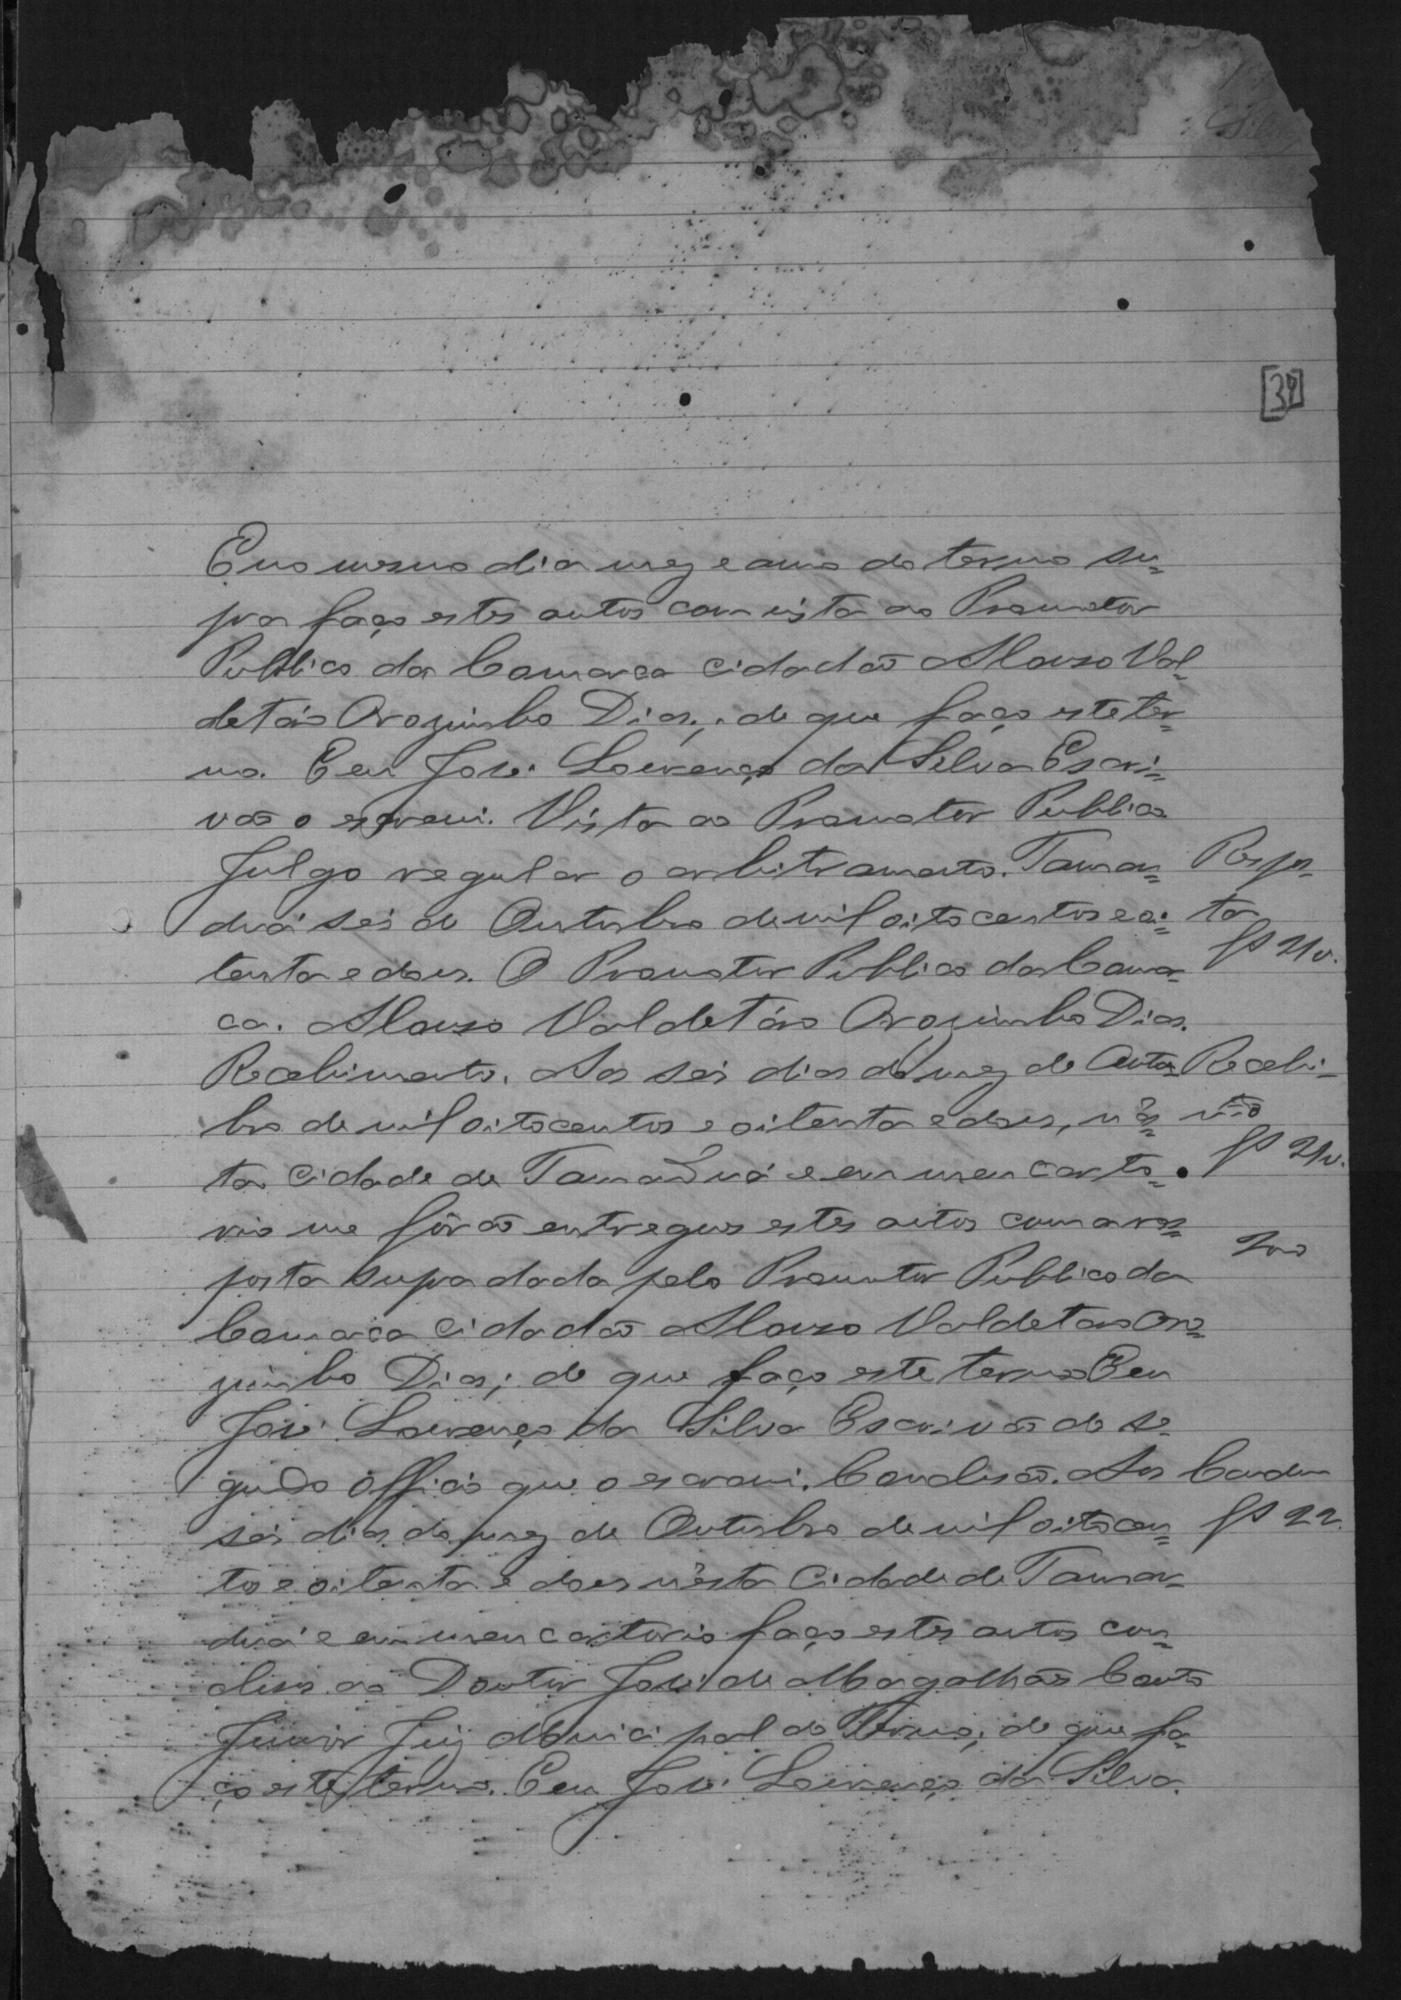 [34]
E no mesmo dia mez e anno do termo su=
pra faço estes autos com vista ao Promotor
Publico da Comarca cidadão Alonso Val=
detáro Orozimbo Dias,; de que faço este ter=
mo. Eeu José Lourenço da Silva Escri=
vão o escrevi. Vista ao Promotor Publico
Julgo regular o arbitramento. Taman= Respos=
duá seis de Outubro de mil oito centos e oi= ta
tenta e dous. O Promotor Publico da Comar= fs 21v.
ca. Alonso Valdetáro Orozimbo Dias.
Recebimento. Aos seis dias do mez de Outu= Recebi=
bro de mil oitocentos e oitenta e dous, n'es= mto
ta cidade de Tamanduá e em meu carto= fs 21v.
rio me fôrão entregues estes autos com a res=
posta supra dada pelo Promotor Publico da 200
Comarca cidadão Alonso Valdetaro Oro=
zimbo Dias; de que faço este termo Eeu
José Lourenço da Silva Escrivão do se=
gundo officio que o escrevi. Conclusão. Aos Conclu
seis dias do mez de Outubro de mil oitocen= fs 22.
to e oitenta e dous n'esta Cidade de Taman=
duá e em meu cartorio faço estes autos con=
clusos ao Doutor José de Magalhães Couto
Junior Juiz Municipal do Termo; de que fa=
ço este termo. Eeu José Lourenço da Silva.